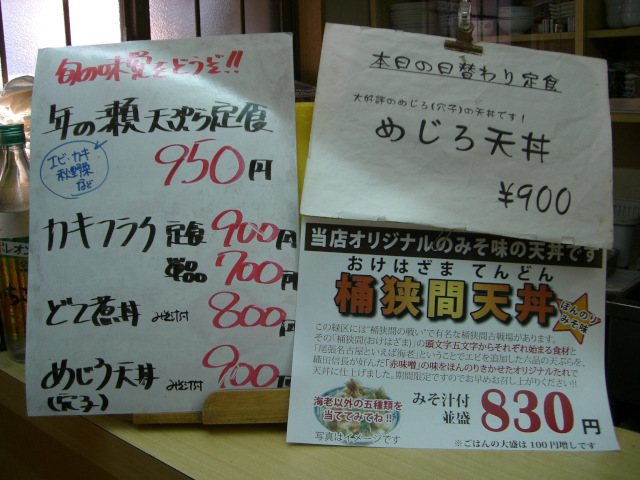 旬の味覚をどうぞ!!
年の瀬天ぷら定食
エビ・カキ
秋野菜
など
950円
カキフライ 定食 900円
単品 700円
どて煮丼 みそ汁付 800円
めじろ天丼 みそ汁付 900円
(穴子)
本日の日替わり定食
大好評のめじろ(穴子)の天丼です!
めじろ天丼
¥900
当店オリジナルのみそ味の天丼です
おけはざま てんどん
桶狭間天丼
ほんのり
みそ味
この緑区には"桶狭間の戦い"で有名な桶狭間古戦場があります。
その「桶狭間(おけはざま)」の頭文字五文字からそれぞれ始まる食材と
「尾張名古屋といえば海老」ということでエビを追加した六品の天ぷらを、
織田信長が好んだ「赤味噌」の味をほんのりきかせたオリジナルたれで
天丼に仕上げました。期間限定ですのでお早めお召し上がりください!!
海老以外の五種類を
当ててみてね!!
写真はイメージです
みそ汁付
並盛 830円
※ごはんの大盛は100円増しです